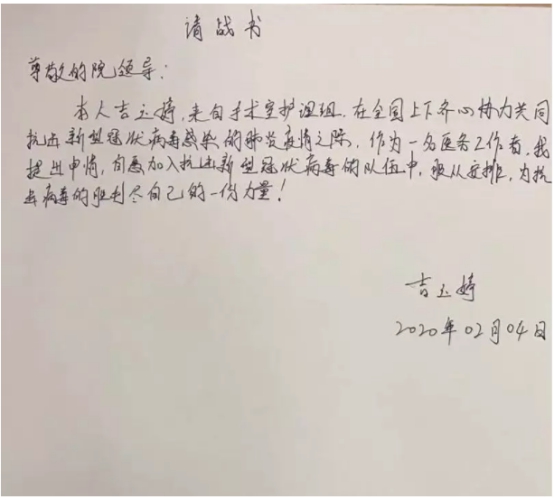 请战书
尊敬的院领导：
本人吉玉婷，来自手术室护理组，在全国上下齐心协力共同
抗击新型冠状病毒感染的肺炎疫情之际，作为一名医务工作者，我
提出申请，自愿加入抗击新型冠状病毒的队伍中，服从安排，为抗
击病毒的胜利尽自己的一份力量！
吉玉婷
2020年02月04日